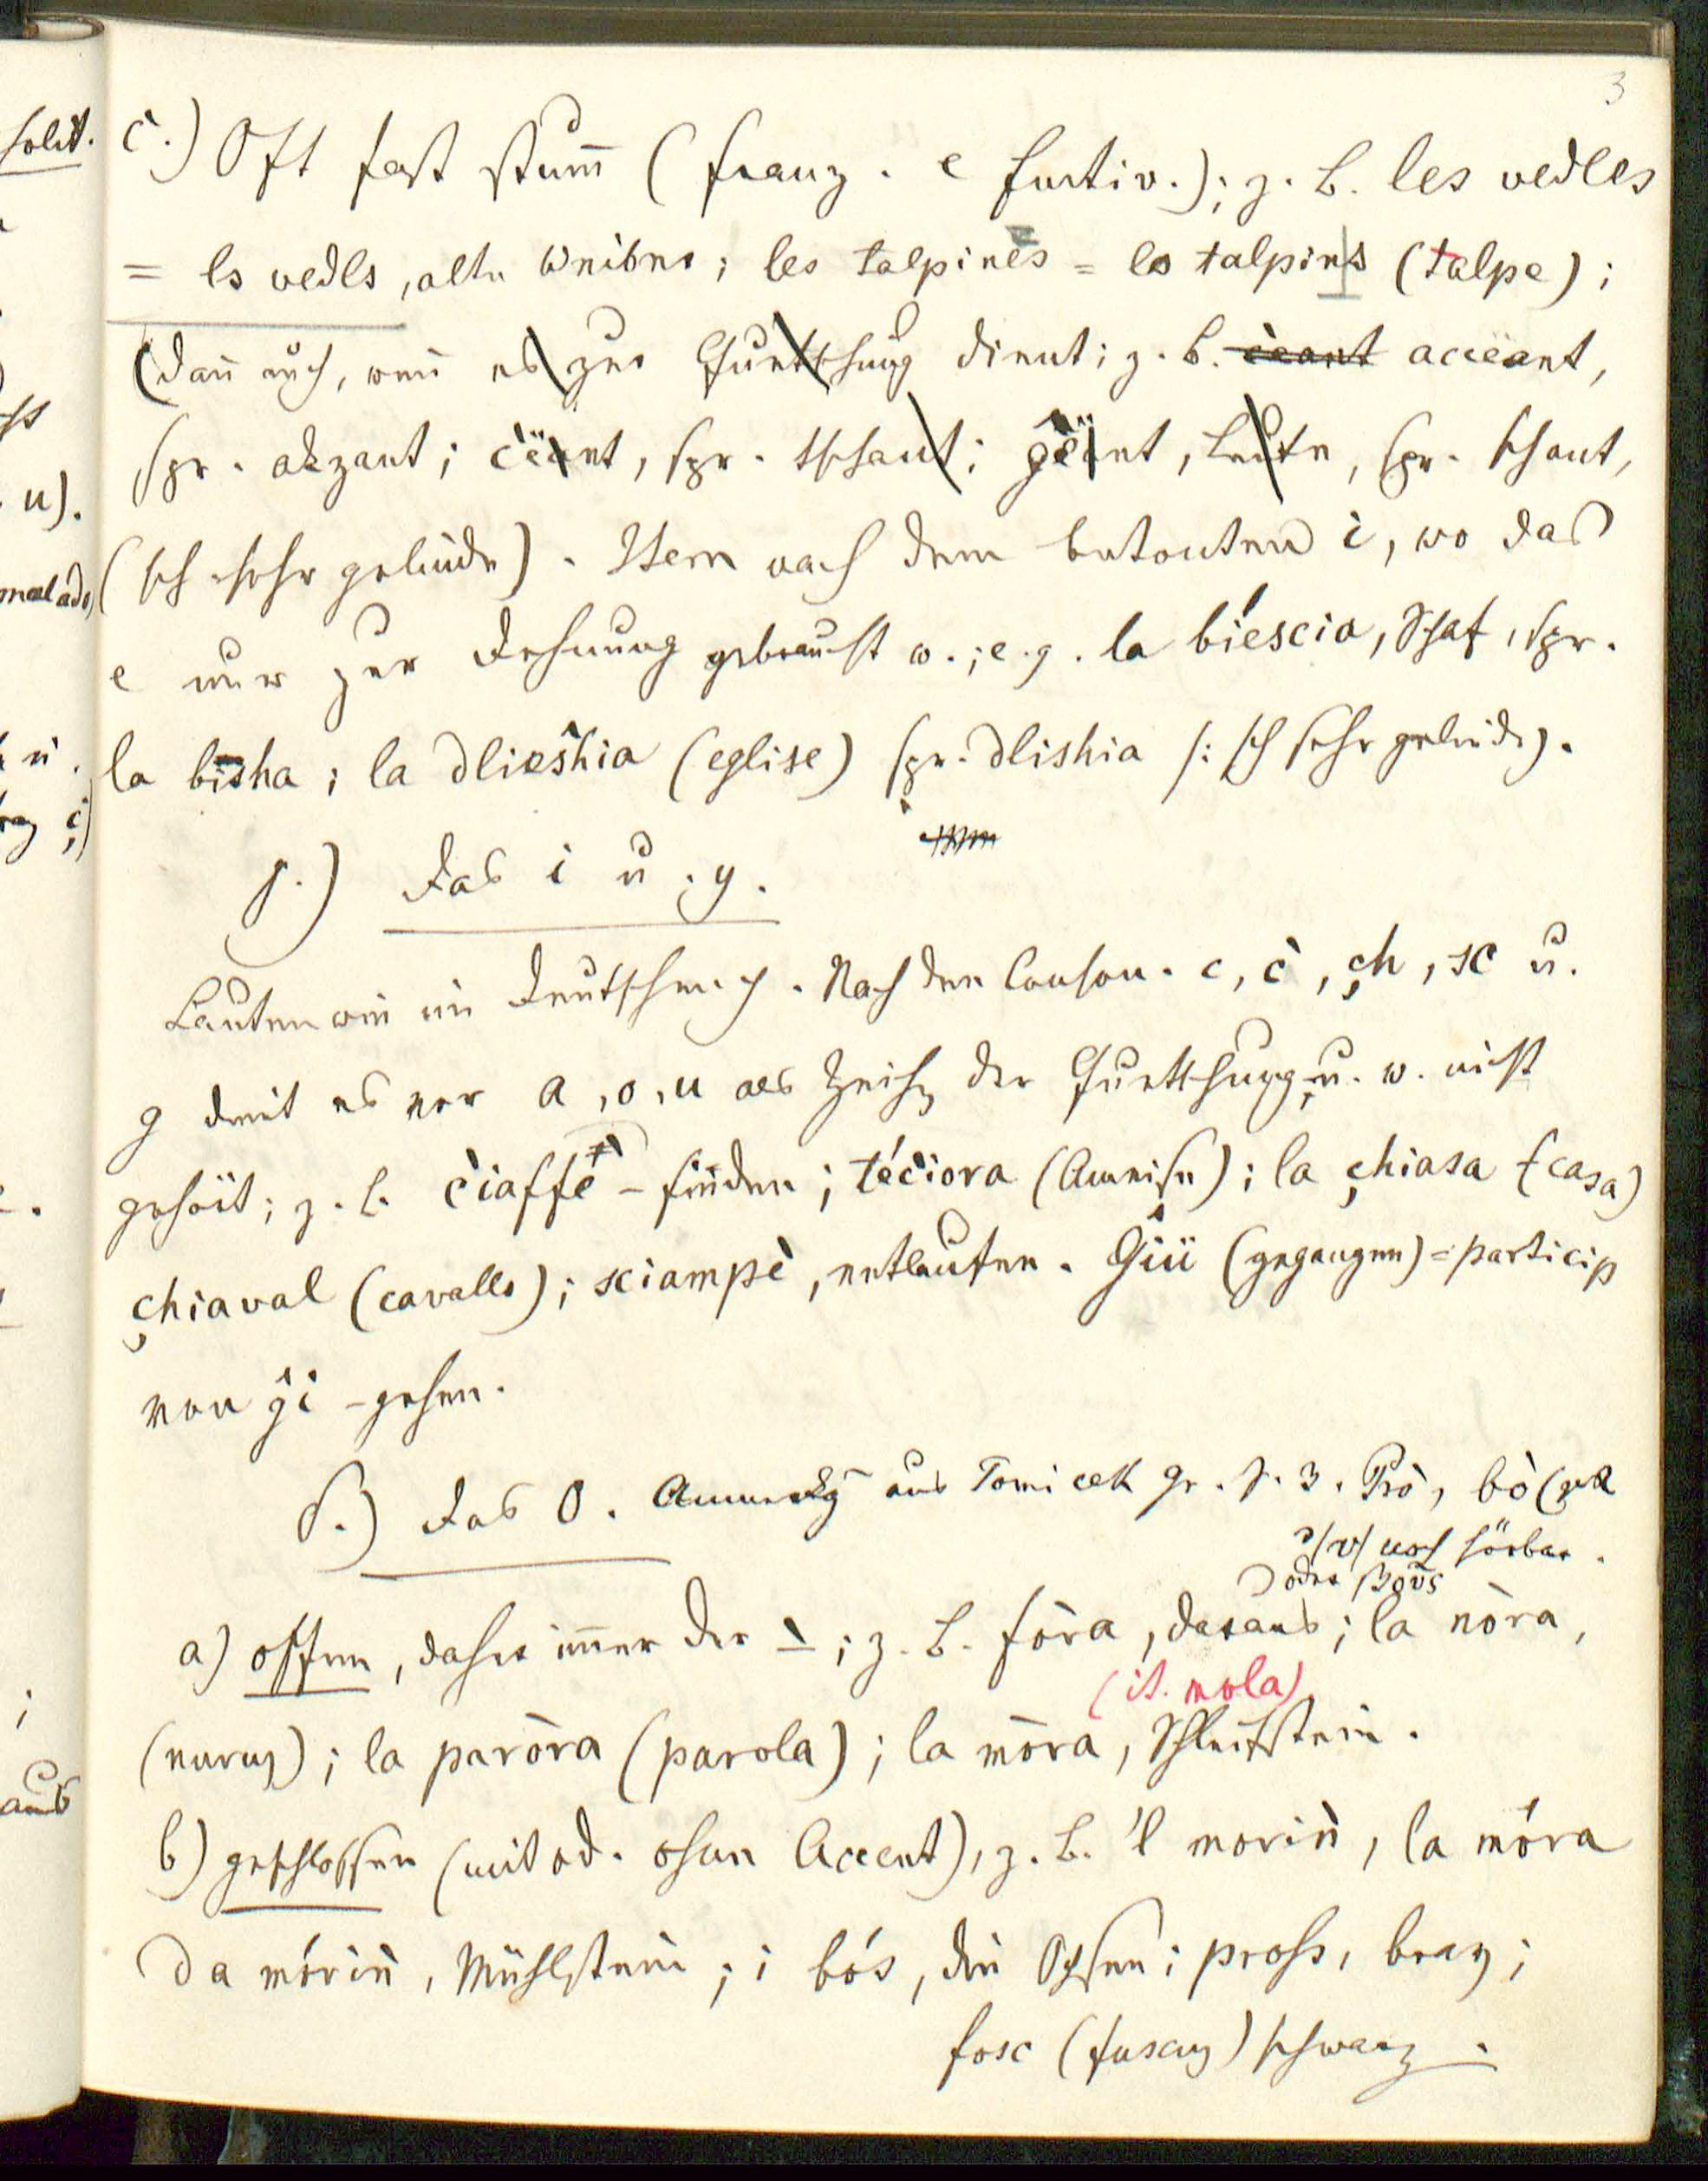 3
c.) Oft fast stum̅ (franz. e furtiv.); z. B. les vedles
= ls vedls, alte Weiber; les talpines = ls talpins (talpe);
(dan̅ auch, wen̅ es zur Quetschung dient; z. B. c̀eant accëant,
spr. akzant; c̀ëant, spr. tschant; g̀ëant, Leute, spr. schant,
(sch sehr gelinde). Item nach dem betonten i, wo das
e nur zur Dehnung gebraucht w.; e. g. la bíescia, Schaf, spr.
la bīsha; la dlieshia (eglise) spr. dlishia /: sch sehr gelinde).
γ.) Das i u. y.
Lauten wie im Deutschen. Nach den Conson. c, c̀, çh, sc u.
g dient es vor a, o, u als Zeichen der Quetschung, u. w. nicht
gehört; z. B. c̀iaffè – finden; téc̀iora (Ameise); la çhiasa (casa)
çhiaval (cavallo); sciampè, entlaufen. G̀iü (gegangen) = particip
von g̀i – gehen.
δ.) Das O. Anmerkg aus Tomicek gr. S. 3. Prò, bò (gek
/v/ noch hörbar.
oder βοῦς
a) offen, daher im̅er der ̀ ; z. B. fòra, daraus; la nòra,
(it. mola)
(nurus); la paròra (parola); la mòra, Schleifstein.
b) geschlossen (mit od. ohne Accent), z. B. 'l morin̄, la móra
da mórin̄, Mühlstein; i bós, die Ochsen; pross, brav;
fosc (fuscus) schwarz.